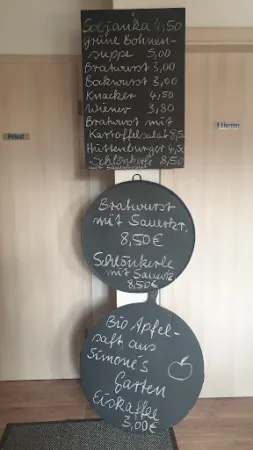 Soljanka 4,50
grüne Bohnen-
suppe 5,00
Bratwurst 3,00
Bockwurst 3,00
Knacker 4,50
Wiener 3,80
Bratwurst mit
Kartoffelsalat 8,50
Hüttenburger 4,50
Schlönkerle 8,50
Privat
Herren
Bratwurst
mit Sauerkr.
8,50€
Schlönkerle
mit Sauerkr.
8,50€
Bio Apfel-
saft aus
Simone's
Garten
Eiskaffee
3,00€